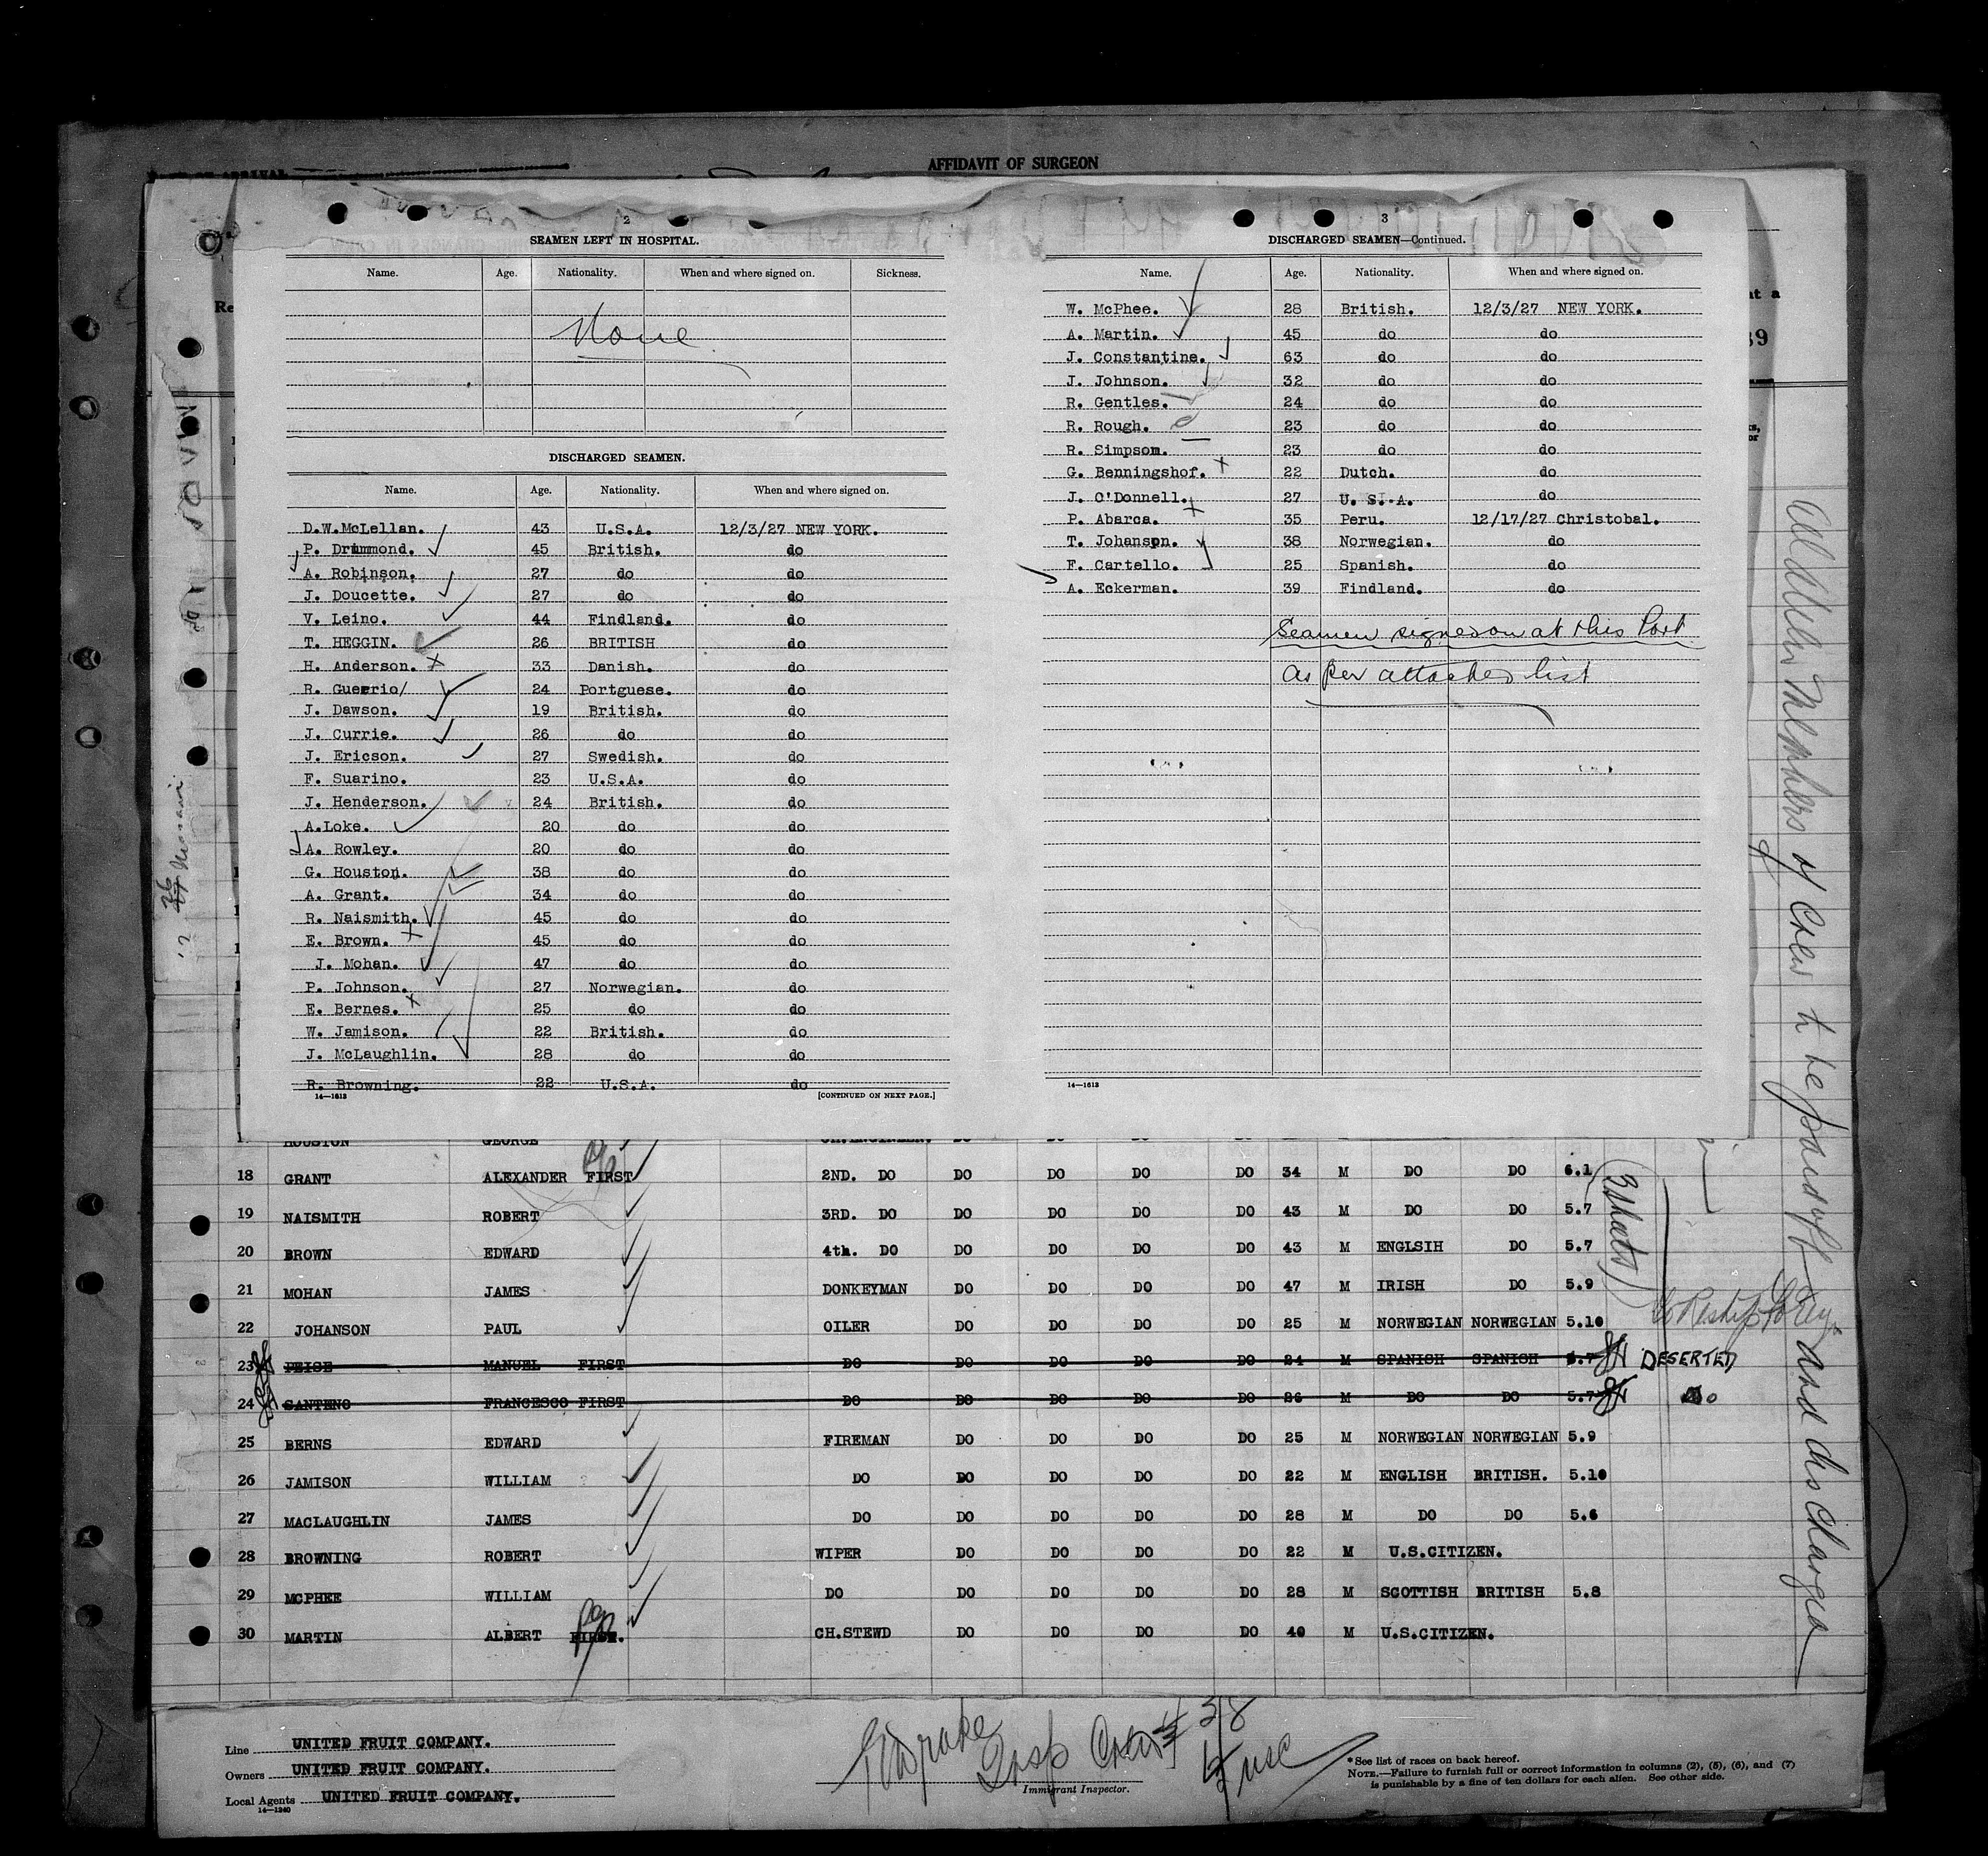 AFFIDAVIT OF SURGEON
2
SEAMEN LEFT IN HOSPITAL.
Name. Age. Nationality. When and where signed on. Sickness.
None
DISCHARGED SEAMEN.
Name. Age. Nationality. When and where signed on.
D.W.McLellan. 43 U.S.A. 12/3/27 NEW YORK.
P. Drummond. 45 British. do
A. Robinson. 27 do do
J. Doucette. 27 do do
V. Leino. 44 Findland. do
T. HEGGIN. 26 BRITISH do
H. Anderson. 33 Danish. do
R. Guerrio/ 24 Portguese. do
J. Dawson. 19 British. do
J. Currie. 26 do do
J. Ericson. 27 Swedish. do
F. Suarino. 23 U.S.A. do
J. Henderson. 24 British. do
A.Loke. 20 do do
A. Rowley. 20 do do
G. Houston. 38 do do
A. Grant. 34 do do
R. Naismith. 45 do do
E. Brown. 45 do do
J. Mohan. 47 do do
P. Johnson. 27 Norwegian. do
E. Bernes. 25 do do
W. Jamison. 22 British. do
J. McLaughlin. 28 do do
R. Browning. 22 U.S.A. do
14—1613 [CONTINUED ON NEXT PAGE.]
3
DISCHARGED SEAMEN—Continued.
Name. Age. Nationality. When and where signed on.
W. McPhee. 28 British. 12/3/27 NEW YORK.
A. Martin. 45 do do
J. Constantine. 63 do do
J. Johnson. 32 do do
R. Gentles. 24 do do
R. Rough. 23 do do
R. Simpson. 23 do do
G. Benningshof. 22 Dutch. do
J. O'Donnell. 27 U. S. A. do
P. Abarca. 35 Peru. 12/17/27 Christobal.
T. Johanson. 38 Norwegian. do
F. Cartello. 25 Spanish. do
A. Eckerman. 39 Findland. do
Seamen signed on at this Port
as per attached list
14—1613
HOUSTON GEORGE CH.ENGINEER. DO DO DO DO
18 GRANT ALEXANDER FIRST 2ND. DO DO DO DO DO 34 M DO DO 6.1
19 NAISMITH ROBERT 3RD. DO DO DO DO DO 43 M DO DO 5.7
20 BROWN EDWARD 4th. DO DO DO DO DO 43 M ENGLSIH DO 5.7
21 MOHAN JAMES DONKEYMAN DO DO DO DO 47 M IRISH DO 5.9
22 JOHANSON PAUL OILER DO DO DO DO 25 M NORWEGIAN NORWEGIAN 5.10
23 PEIGE MANUEL FIRST DO DO DO DO DO 24 M SPANISH SPANISH 5.7 DESERTED
24 SANTENG FRANCESCO FIRST DO DO DO DO DO 26 M DO DO 5.7 Do
25 BERNS EDWARD FIREMAN DO DO DO DO 25 M NORWEGIAN NORWEGIAN 5.9
26 JAMISON WILLIAM DO DO DO DO DO 22 M ENGLISH BRITISH. 5.10
27 MACLAUGHLIN JAMES DO DO DO DO DO 28 M DO DO 5.6
28 BROWNING ROBERT WIPER DO DO DO DO 22 M U.S.CITIZEN.
29 MCPHEE WILLIAM DO DO DO DO DO 28 M SCOTTISH BRITISH 5.8
30 MARTIN ALBERT FIRST. CH.STEWD DO DO DO DO 40 M U.S.CITIZEN.
All Alien Members of Crew to be paid off and discharged
Line UNITED FRUIT COMPANY.
Owners UNITED FRUIT COMPANY.
Local Agents UNITED FRUIT COMPANY.
14—1240
Immigrant Inspector.
*See list of races on back hereof.
NOTE.—Failure to furnish full or correct information in columns (2), (5), (6), and (7)
is punishable by a fine of ten dollars for each alien. See other side.